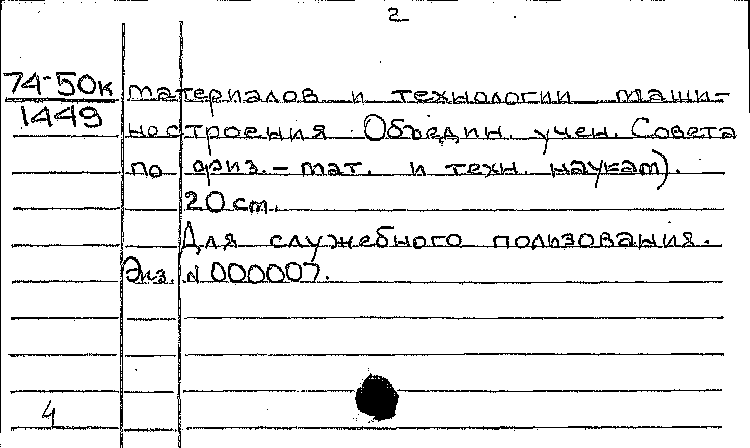 2
74-50к
1449
материалов и технологии маши-
ностроения Объедин. учен. Совета
по физ.-мат. и техн. наукам).
20 см.
Для служебного пользования.
Экз. N 000007.
4